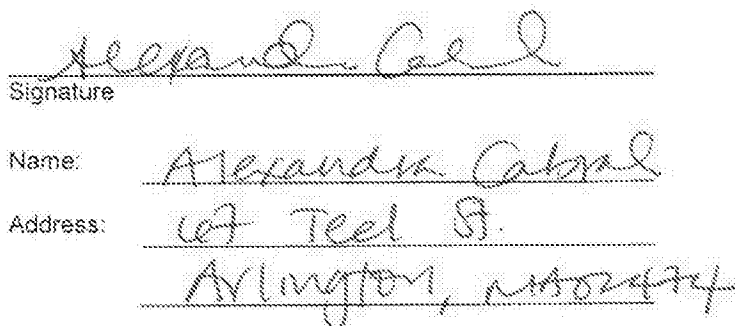 Alexandra Cabral
Signature
Name: Alexandra Cabral
Address: 67 Teel St.
Arlington, MA 02474